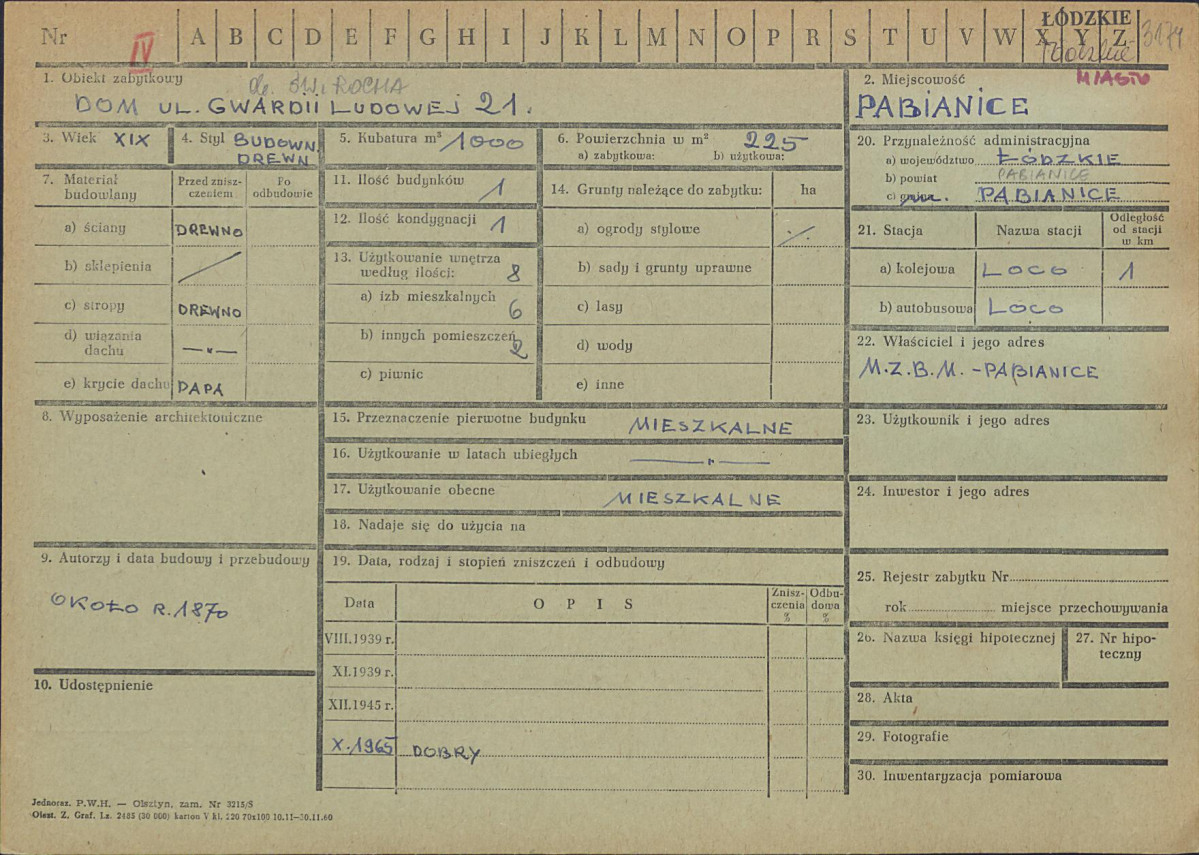 Nr IV A B C D E F G H I J K L M N O P R S T U V W X Y Z
ŁÓDZKIE
3174
1. Obiekt zabytkowy
ob. ŚW. ROCHA
DOM UL. GWARDII LUDOWEJ 21.
2. Miejscowość
MIASTO
PABIANICE
3. Wiek XIX
4. Styl BUDOWN.
DREWN
5. Kubatura m³ 1000
6. Powierzchnia w m² 225
a) zabytkowa: b) użytkowa:
7. Materiał
budowlany
Przed znisz-
czeniem
Po
odbudowie
a) ściany DREWNO
b) sklepienia
c) stropy DREWNO
d) wiązania
dachu —„—
e) krycie dachu PAPA
8. Wyposażenie architektoniczne
9. Autorzy i data budowy i przebudowy
OKOŁO R. 1870
10. Udostępnienie
11. Ilość budynków 1
12. Ilość kondygnacji 1
13. Użytkowanie wnętrza
według ilości: 8
a) izb mieszkalnych 6
b) innych pomieszczeń 2
c) piwnic
14. Grunty należące do zabytku: ha
a) ogrody stylowe ./.
b) sady i grunty uprawne
c) lasy
d) wody
e) inne
15. Przeznaczenie pierwotne budynku MIESZKALNE
16. Użytkowanie w latach ubiegłych —„—
17. Użytkowanie obecne MIESZKALNE
18. Nadaje się do użycia na
19. Data, rodzaj i stopień zniszczeń i odbudowy
Data
OPIS
Znisz-
czenia
%
Odbu-
dowa
%
VIII.1939 r.
XI.1939 r.
XII.1945 r.
X.1965 DOBRY
20. Przynależność administracyjna
a) województwo ŁÓDZKIE
b) powiat PABIANICE
c) gmina. PABIANICE
21. Stacja
Nazwa stacji
Odległość
od stacji
w km
a) kolejowa LOCO 1
b) autobusowa LOCO
22. Właściciel i jego adres
M.Z.B.M. - PABIANICE
23. Użytkownik i jego adres
24. Inwestor i jego adres
25. Rejestr zabytku Nr
rok miejsce przechowywania
26. Nazwa księgi hipotecznej
27. Nr hipo-
teczny
28. Akta
29. Fotografie
30. Inwentaryzacja pomiarowa
Jednoraz. P.W.H. — Olsztyn, zam. Nr 3215/S
Olszt. Z. Graf. Lz. 2485 (30 000) karton V kl. 220 70x100 10.11—30.11.60